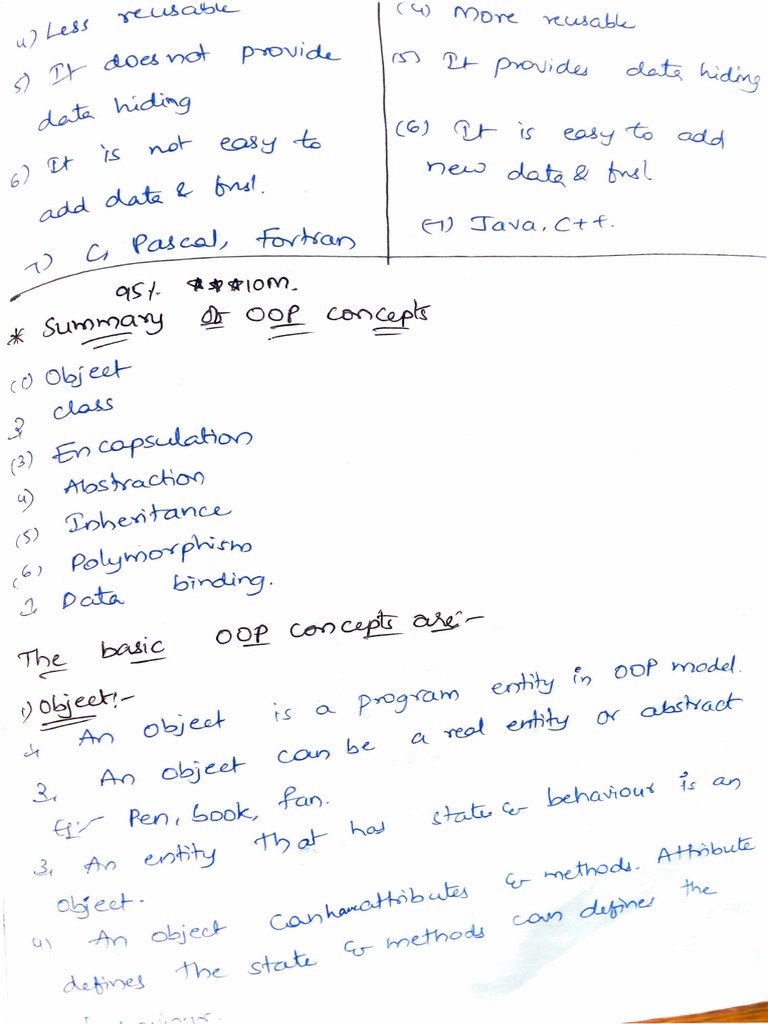 4) Less reusable
5) It does not provide
data hiding
6) It is not easy to
add data & fns!.
7) C, Pascal, Fortran
(4) More reusable
(5) It provides data hiding
(6) It is easy to add
new data & fns!
(7) Java, C++.
95% ***10M.
* Summary of OOP concepts
(1) Object
2, class
(3) Encapsulation
4) Abstraction
(5) Inheritance
(6) Polymorphism
7, Data binding.
The basic OOP concepts are:-
1) Object:-
1, An object is a program entity in OOP model.
2, An object can be a real entity or abstract
Eg:- Pen, book, fan.
3, An entity that has state & behaviour is an
object.
4) An object can have attributes & methods. Attribute
defines the state & methods can defines the